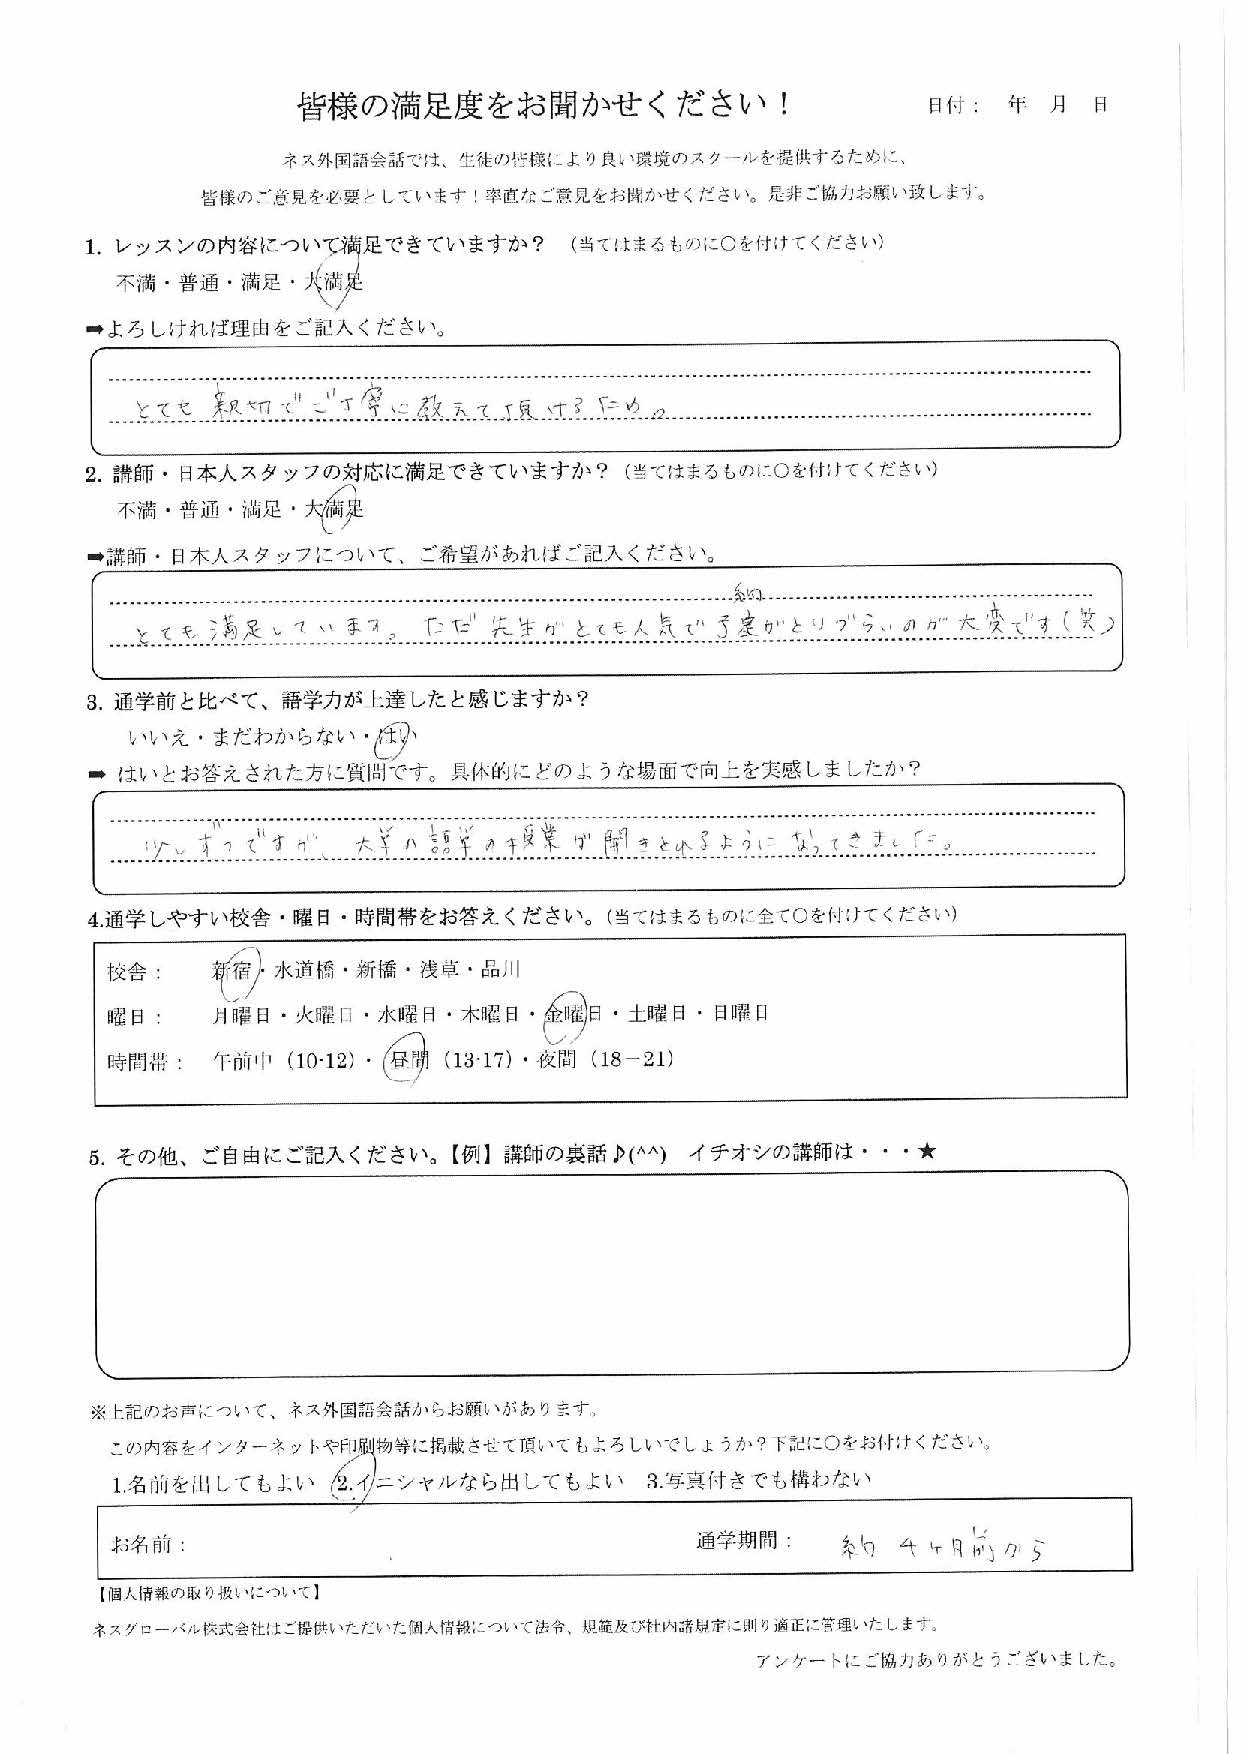 皆様の満足度をお聞かせください！　日付：　年　月　日
ネス外国語会話では、生徒の皆様により良い環境のスクールを提供するために、
皆様のご意見を必要としています！率直なご意見をお聞かせください。是非ご協力お願い致します。
1. レッスンの内容について満足できていますか？　（当てはまるものに〇を付けてください）
不満・普通・満足・大満足
➡よろしければ理由をご記入ください。
とても親切でご丁寧に教えて頂けるため。
2. 講師・日本人スタッフの対応に満足できていますか？（当てはまるものに〇を付けてください）
不満・普通・満足・大満足
➡講師・日本人スタッフについて、ご希望があればご記入ください。
約
とても満足しています。ただ先生がとても人気で予定がとりづらいのが大変です（笑）
3. 通学前と比べて、語学力が上達したと感じますか？
いいえ・まだわからない・はい
➡ はいとお答えされた方に質問です。具体的にどのような場面で向上を実感しましたか？
少しずつですが、大学の語学の授業が聞きとれるようになってきました。
4.通学しやすい校舎・曜日・時間帯をお答えください。（当てはまるものに全て〇を付けてください）
校舎：　新宿・水道橋・新橋・浅草・品川
曜日：　月曜日・火曜日・水曜日・木曜日・金曜日・土曜日・日曜日
時間帯：　午前中（10-12）・昼間（13-17）・夜間（18－21）
5. その他、ご自由にご記入ください。【例】講師の裏話♪(^^)　イチオシの講師は・・・★
※上記のお声について、ネス外国語会話からお願いがあります。
この内容をインターネットや印刷物等に掲載させて頂いてもよろしいでしょうか？下記に〇をお付けください。
1.名前を出してもよい　2.イニシャルなら出してもよい　3.写真付きでも構わない
お名前：　通学期間：　約4ヶ月前から
【個人情報の取り扱いについて】
ネスグローバル株式会社はご提供いただいた個人情報について法令、規範及び社内諸規定に則り適正に管理いたします。
アンケートにご協力ありがとうございました。